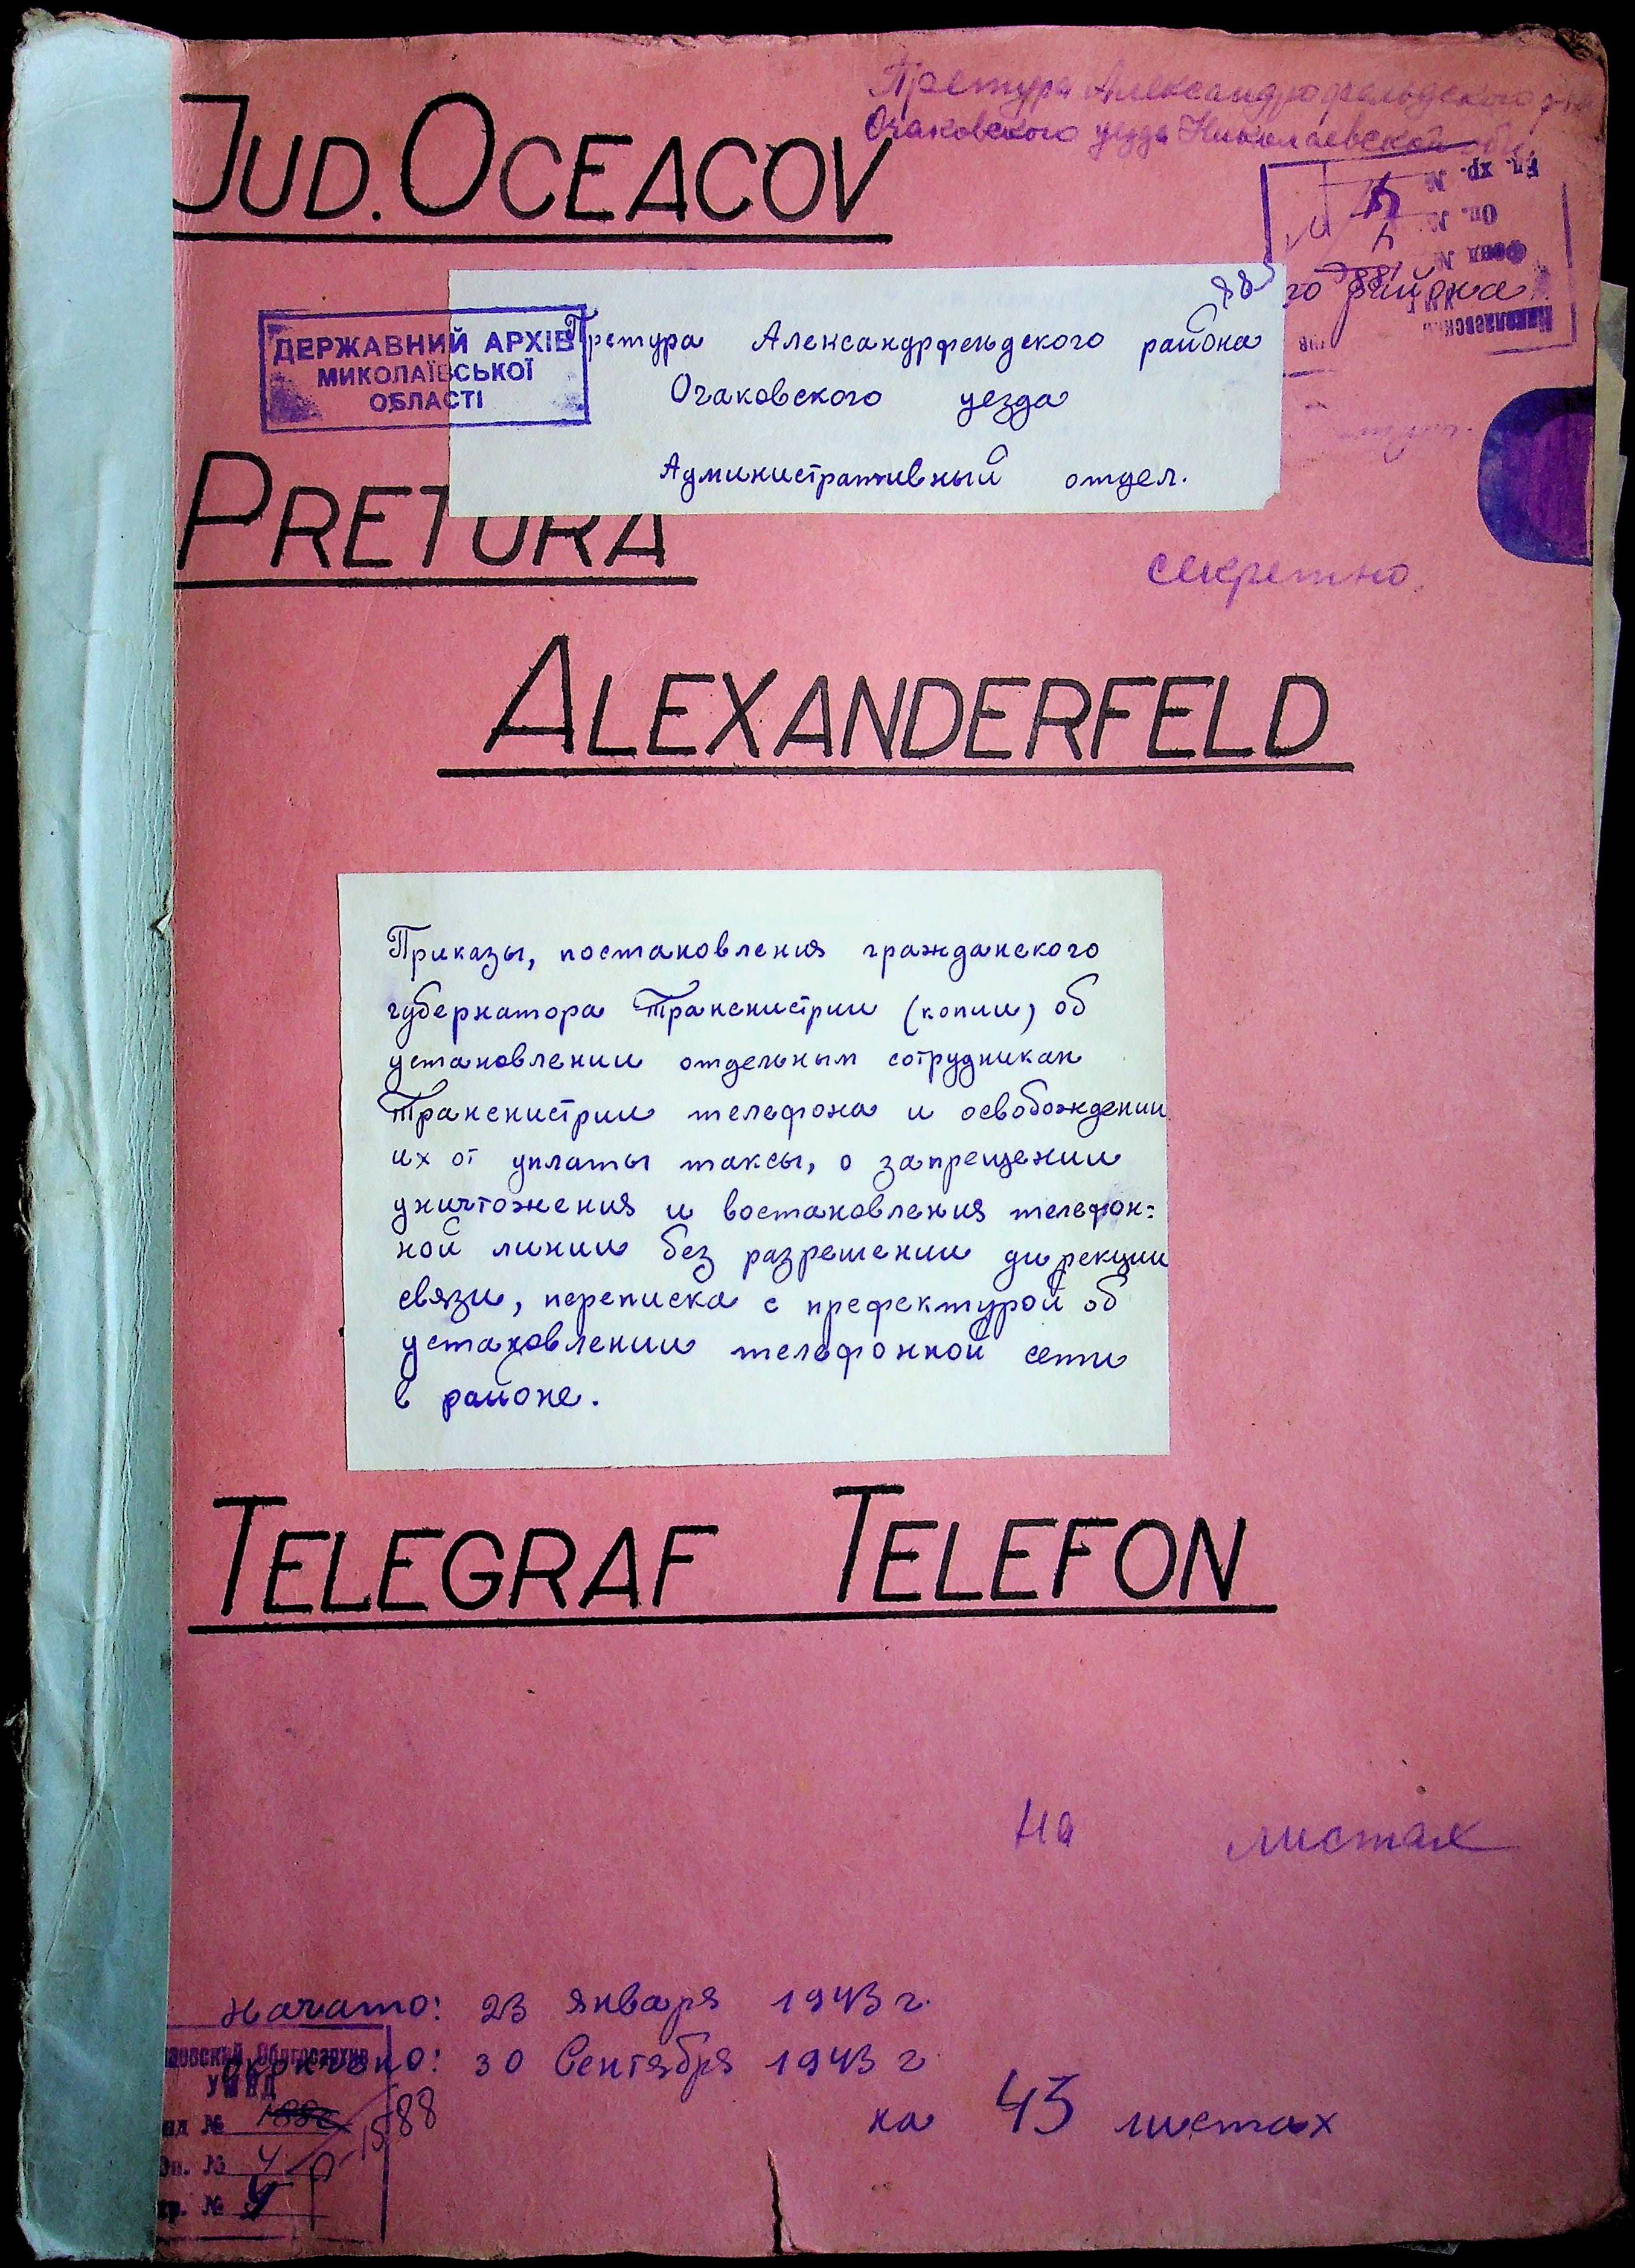 Претура Александрофельдского р-на
Очаковского уезда Николаевской обл.
JUD. OCEACOV
Ед. хр. №
Оп. № 4
Фонд №
88
го района
Претура Александрфельдского района
Очаковского уезда
Административный отдел.
ДЕРЖАВНИЙ АРХІВ
МИКОЛАЇВСЬКОЇ
ОБЛАСТІ
PRETURA
секретно.
ALEXANDERFELD
Приказы, постановления гражданского
губернатора Транснистрии (копии) об
установлении отдельным сотрудникам
Транснистрии телефона и освобождении
их от уплаты таксы, о запрещении
уничтожения и востановления телефон=
ной линии без разрешении дирекции
связи, переписка с префектурой об
установлении телефонной сети
в районе.
TELEGRAF TELEFON
На листах
Начато: 23 января 1943 г.
окончено: 30 Сентября 1943 г.
на 43 листах
Облгосархив
УМВД
№ 1588
Оп. № 4
хр. № 4